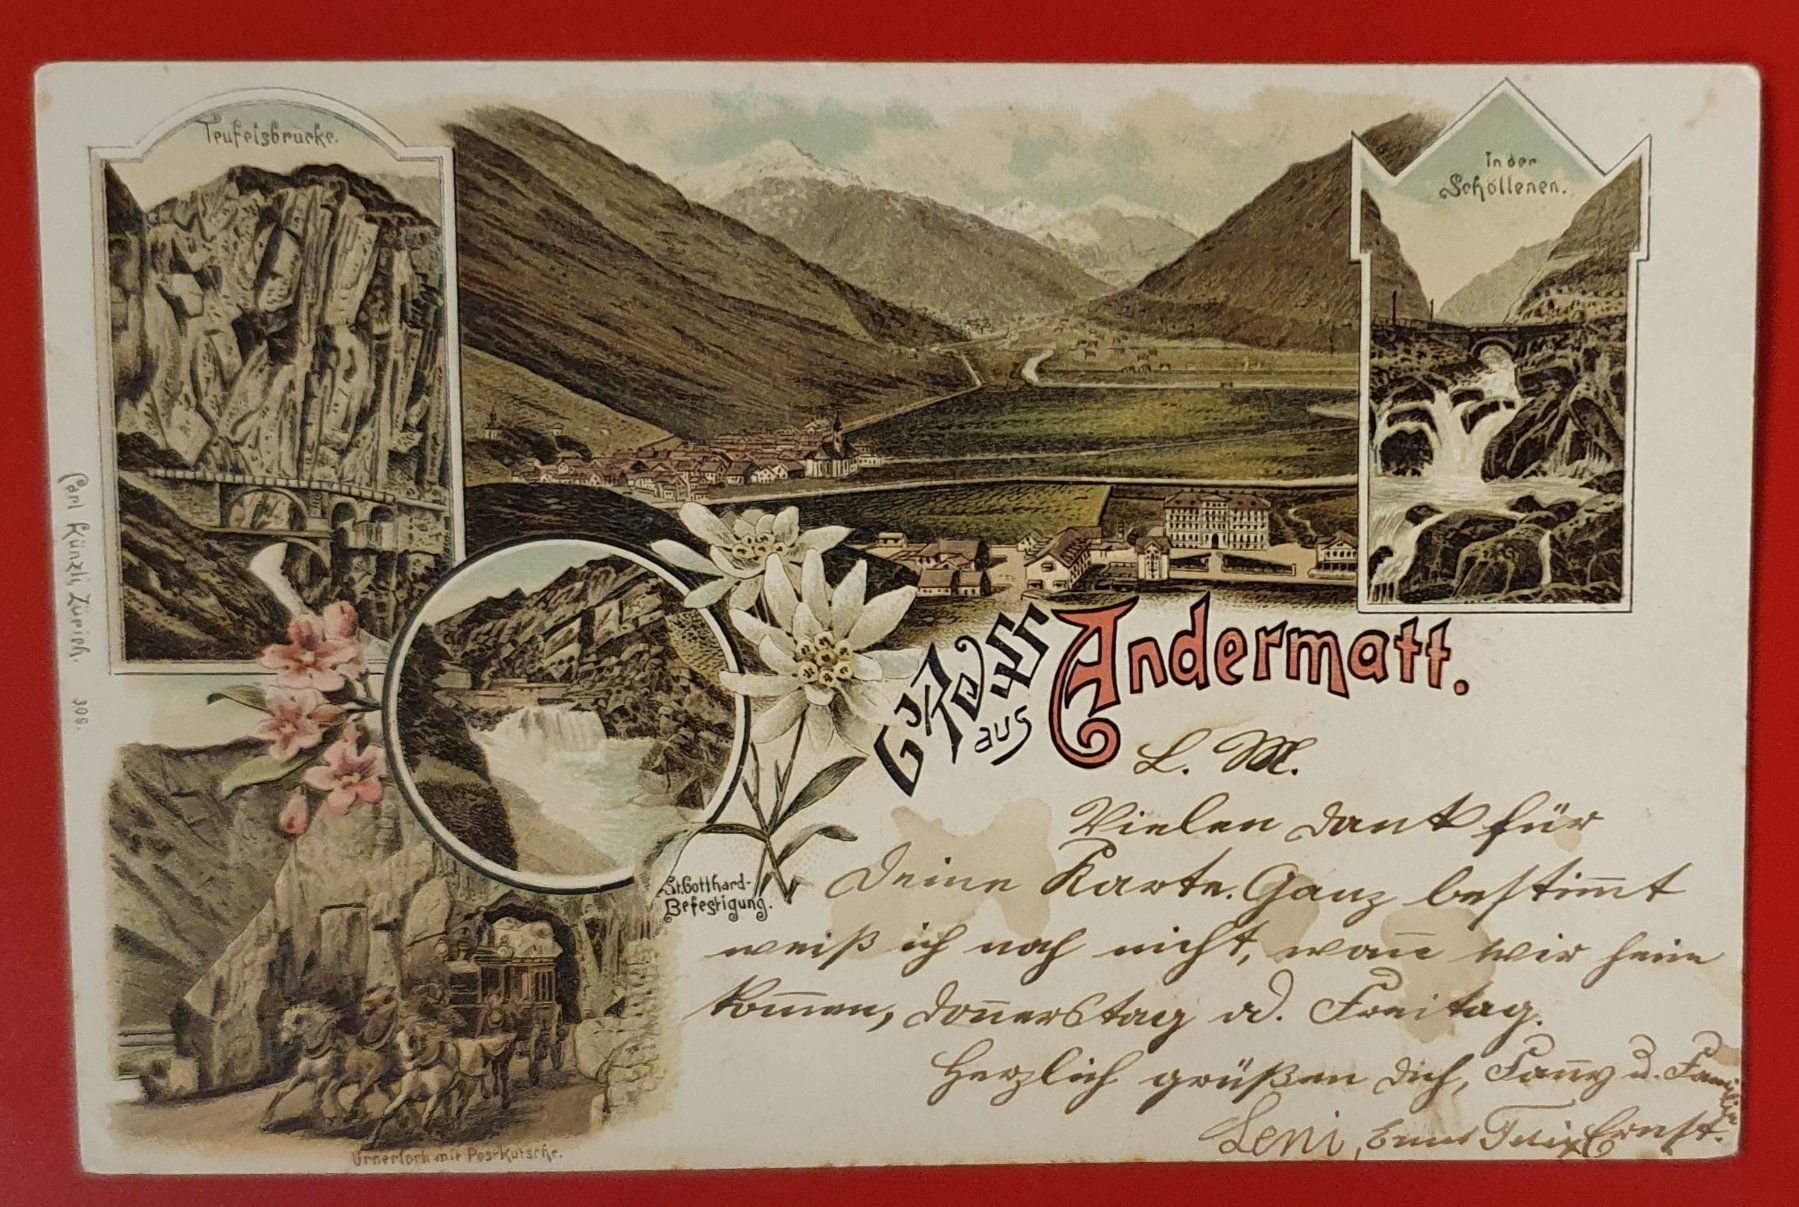 Teufelsbrücke.
In der
Schöllenen.
Carl Künzli, Zürich.
309.
Gruss
aus
Andermatt.
St. Gotthard-
Befestigung.
Urnerloch mit Postkutsche.
L. M.
Vielen Dank für
Deine Karte. Ganz bestim̅t
weiß ich noch nicht, wan̅ wir heim
kom̅en, Don̅erstag od. Freitag.
Herzlich grüßen Dich, Fan̅y u. Familie
Leni, Ernst.